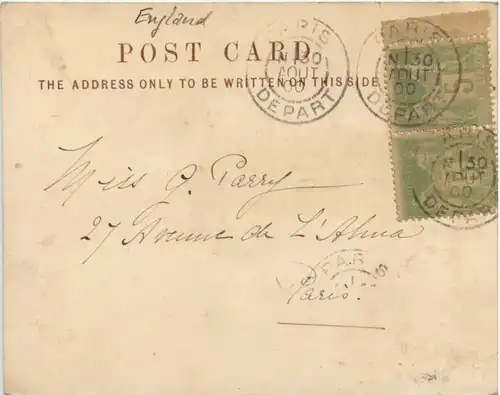 England
POST CARD.
THE ADDRESS ONLY TO BE WRITTEN ON THIS SIDE
PARIS
Nº1 30
AOUT
00
DEPART
PARIS
Nº1 30
AOUT
00
DEPART
5
Nº1 30
AOUT
00
DEPART
Miss G. Parry
27 Avenue de L'Alma
PARIS
Paris.